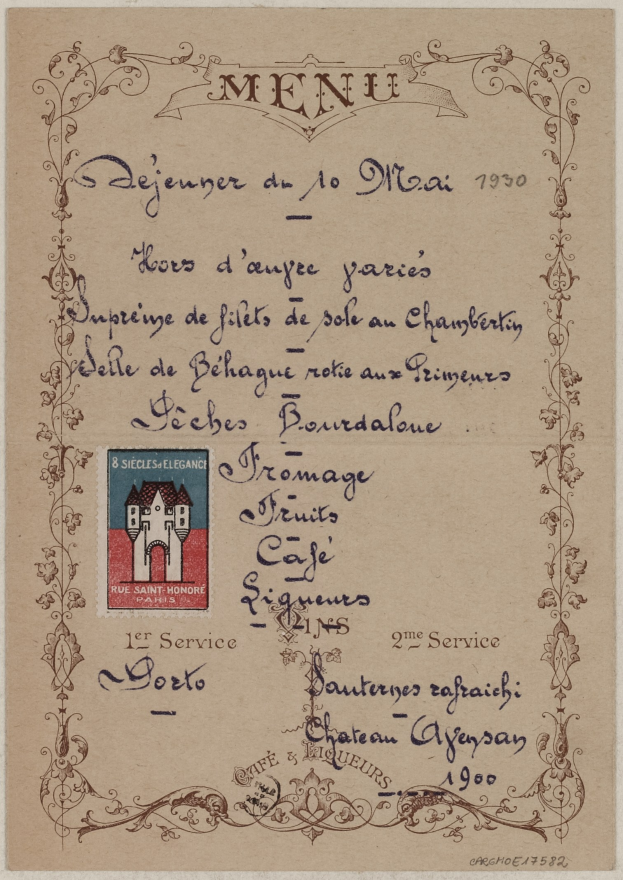 MENU
Déjeuner du 10 Mai 1930
Hors d'œuvre variés
Suprême de filets de sole au Chambertin
Selle de Béhague rotie aux Primeurs
Pêches Bourdaloue
Fromage
Fruits
Café
Liqueurs
8 SIÈCLES d'ELEGANCE
RUE SAINT-HONORÉ
PARIS
VINS
1er Service
2me Service
Porto
Sauternes rafraichi
Chateau Aveysan
1900
CAFÉ & LIQUEURS
CARGMOE17582